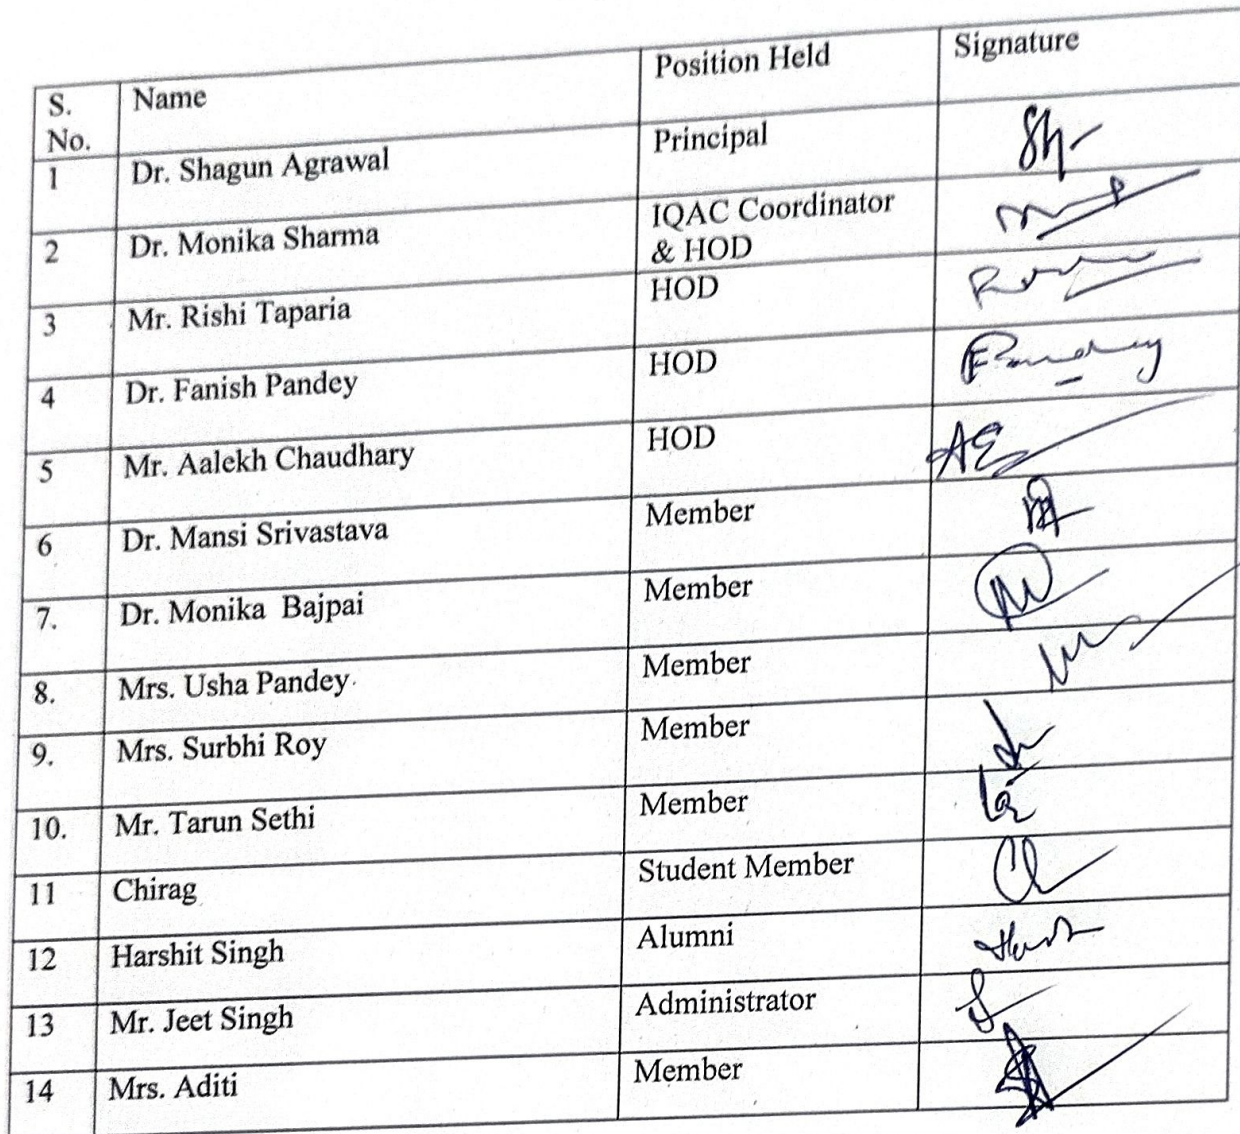 S. No. Name Position Held Signature
1 Dr. Shagun Agrawal Principal
2 Dr. Monika Sharma IQAC Coordinator & HOD
3 Mr. Rishi Taparia HOD
4 Dr. Fanish Pandey HOD
5 Mr. Aalekh Chaudhary HOD
6 Dr. Mansi Srivastava Member
7. Dr. Monika Bajpai Member
8. Mrs. Usha Pandey Member
9. Mrs. Surbhi Roy Member
10. Mr. Tarun Sethi Member
11 Chirag Student Member
12 Harshit Singh Alumni
13 Mr. Jeet Singh Administrator
14 Mrs. Aditi Member